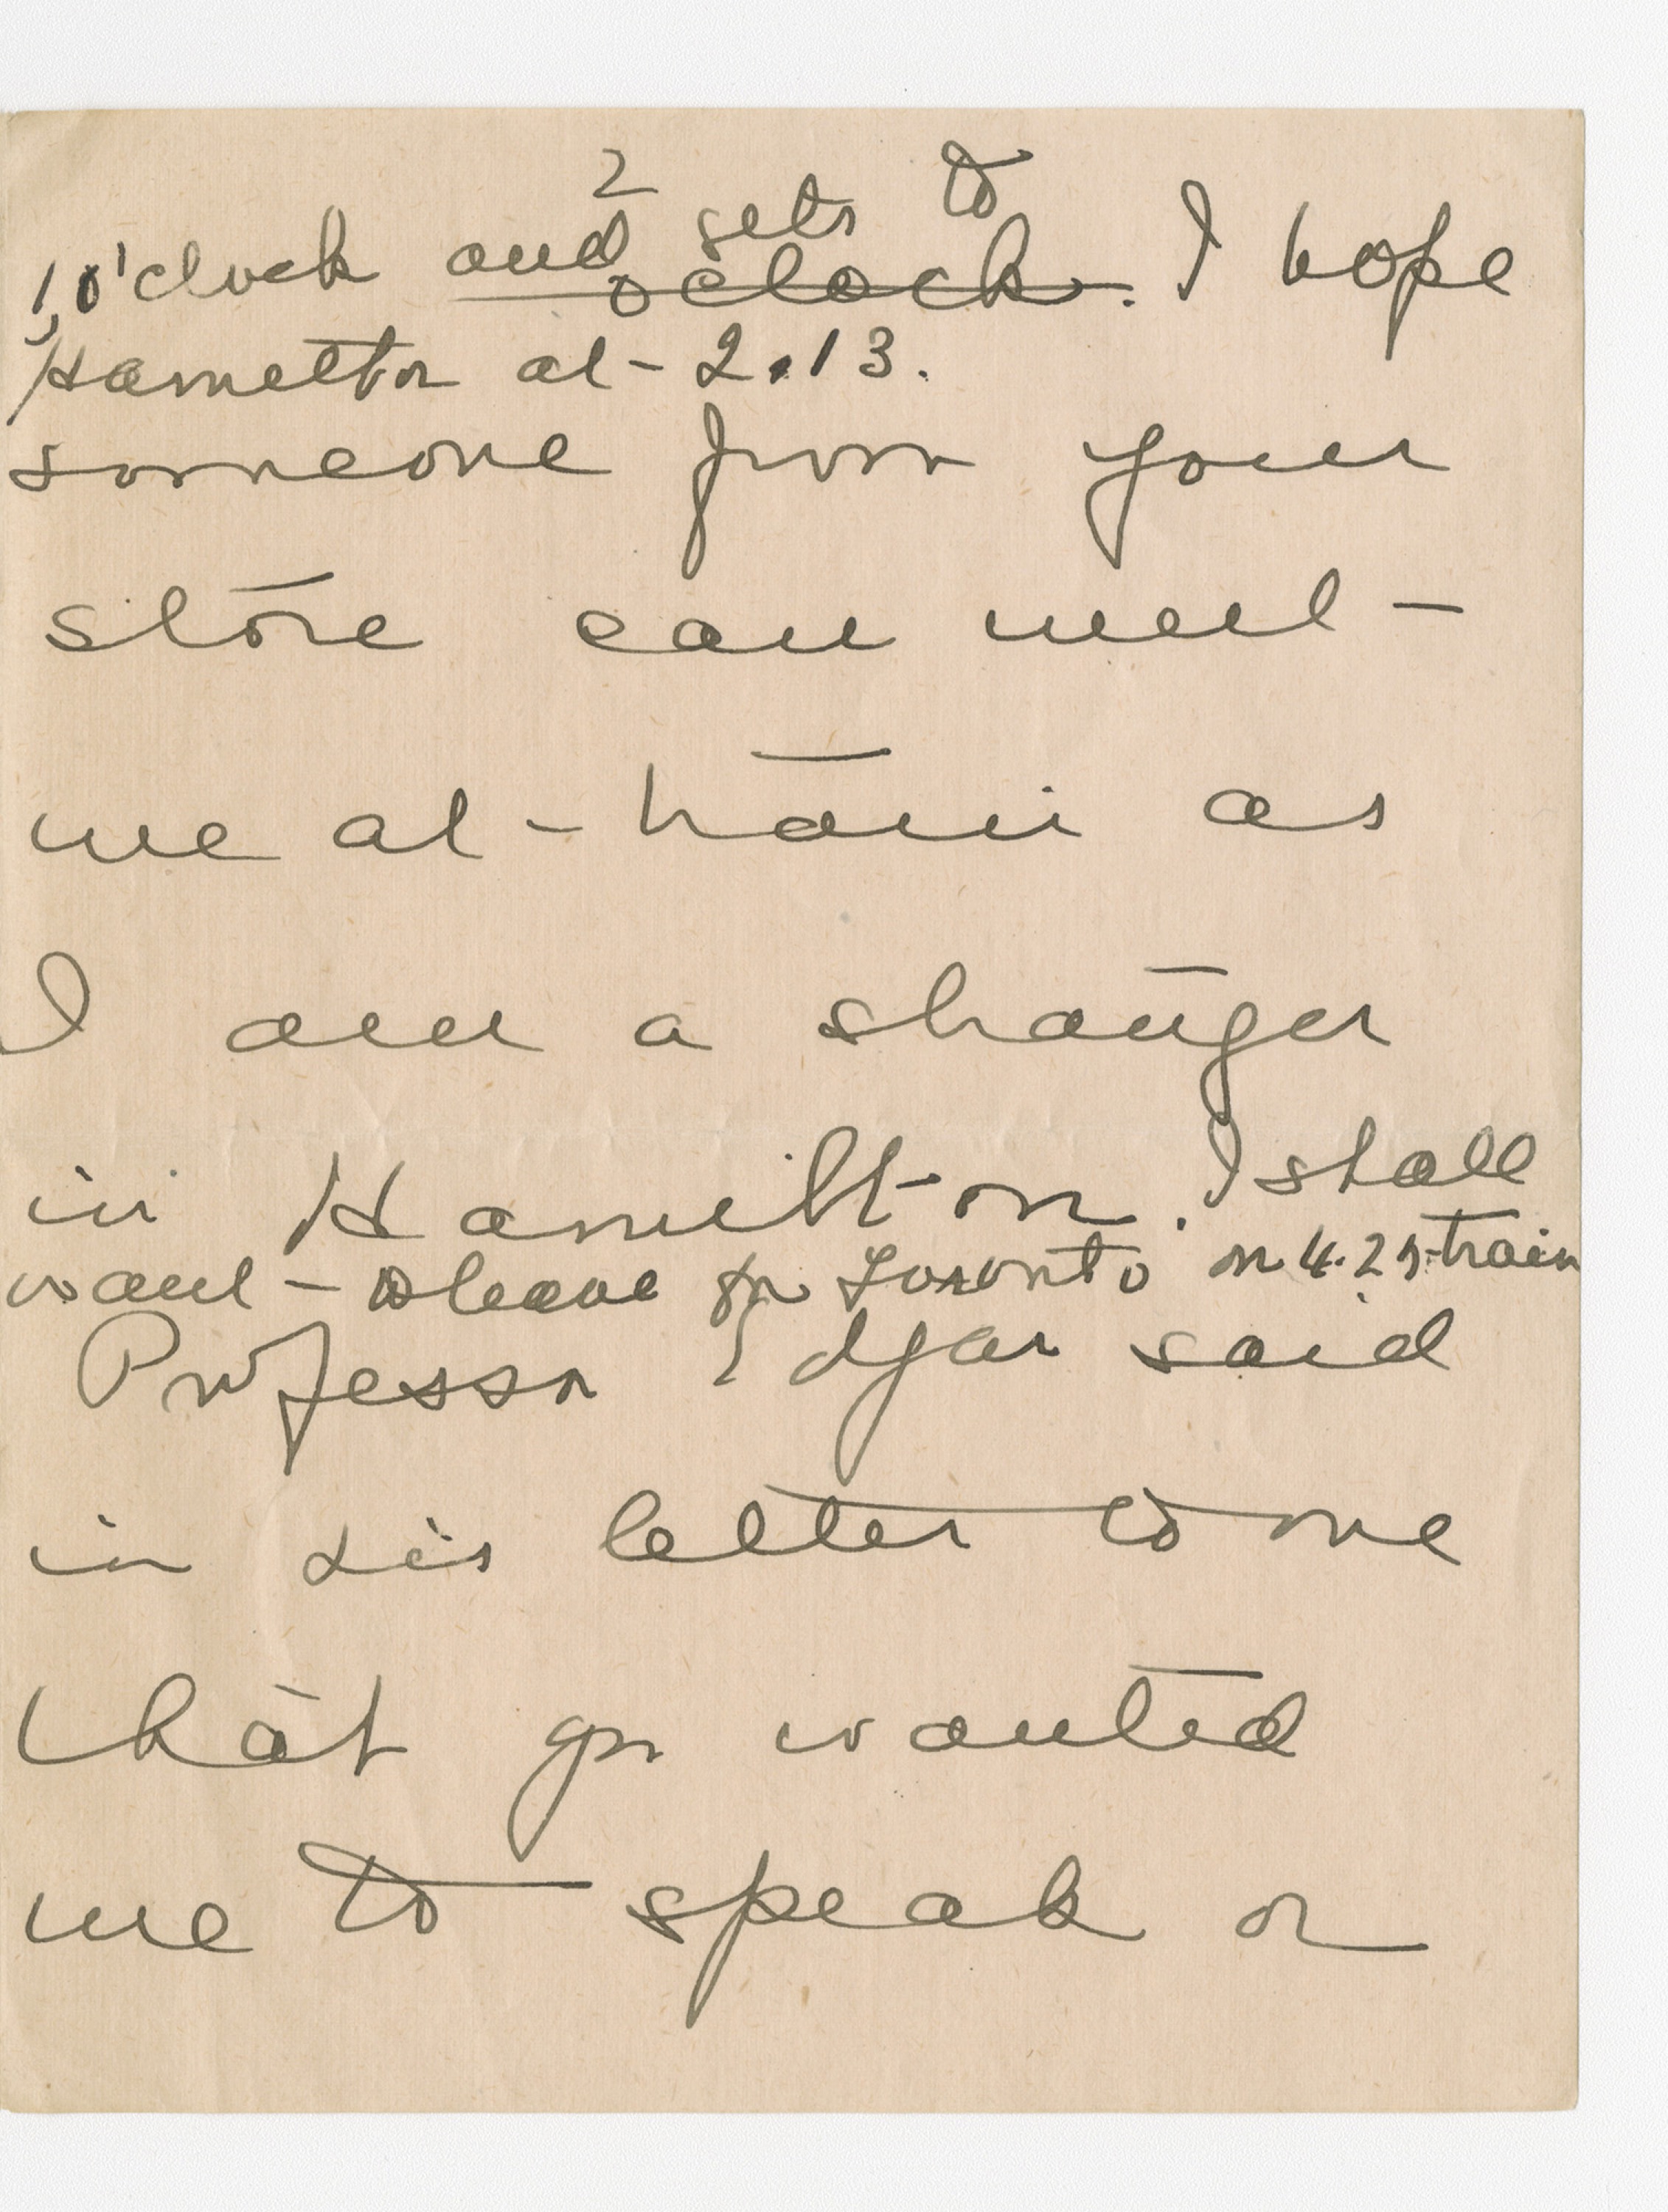 1 o'clock and gets to
2 o'clock. I hope
Hamilton at 2.13.
someone from your
store can meet
me at train as
I am a stranger
in Hamilton. I shall
want to leave for Toronto on 4.25 train
Professor Edgar said
in his letter to me
that you wanted
me to speak on